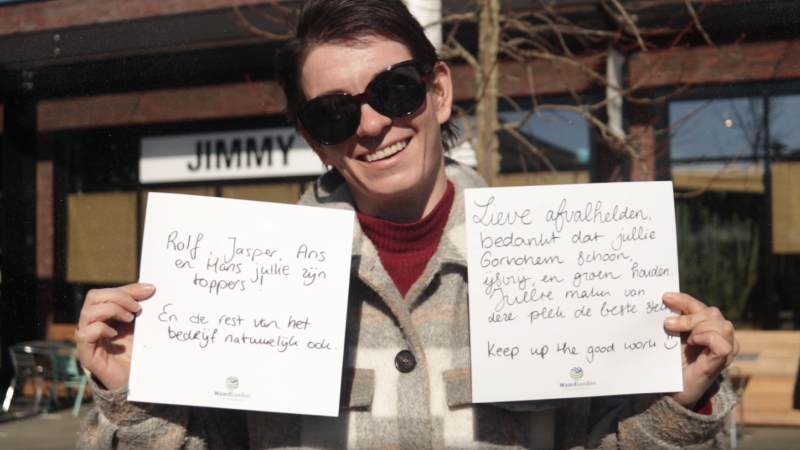 JIMMY
Rolf, Jasper, Ans
en Hans jullie zijn
toppers!
En de rest van het
bedrijf natuurlijk ook.
Waardlanden
Lieve afvalhelden,
bedankt dat jullie
Gorinchem schoon,
ijsvrij, en groen houden.
Jullie maken van
deze plek de beste
Keep up the good work :)
Waardlanden